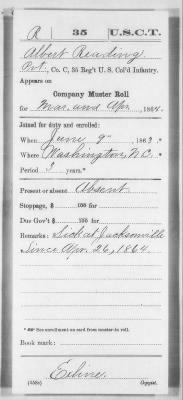 R 35 U.S.C.T.
Albert Reading
Pvt., Co. C, 35 Reg't U. S. Col'd Infantry.
Appears on
Company Muster Roll
for Mar. and Apr., 1864.
Joined for duty and enrolled:
When June 9", 1863.*
Where Washington, N.C.
Period 3 years.*
Present or absent Absent
Stoppage, $ 100 for
Due Gov't $ 100 for
Remarks: Sick at Jacksonville
Since Apr. 26, 1864.
* See enrollment on card from muster-in roll.
Book mark:
(358c) Copyist.